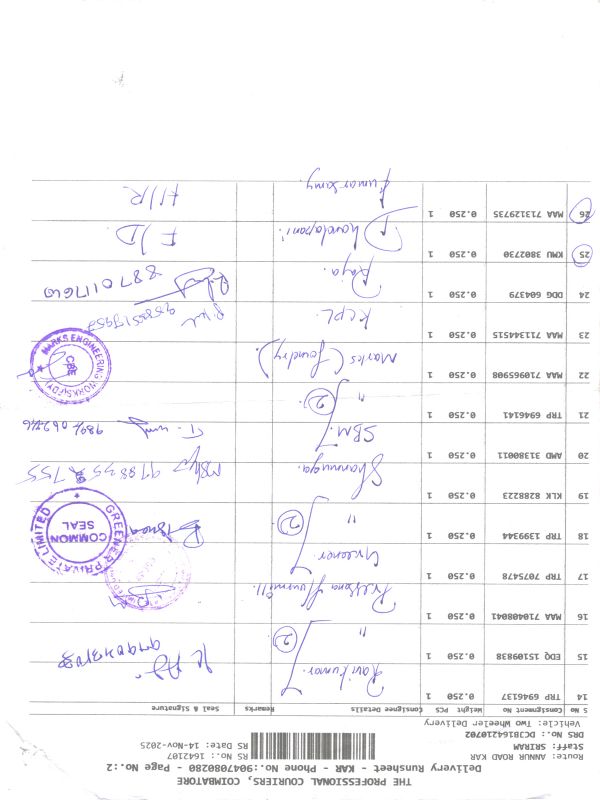 THE PROFESSIONAL COURIERS, COIMBATORE
Delivery Runsheet - KAR - Phone No.:9047080280 - Page No.:2
Route: ANNUR ROAD KAR
Staff: SRIRAM
DRS No.: PCJB164210702
Vehicle: Two Wheeler Delivery
RS No.: 1642107
RS Date: 14-Nov-2025
S No Consignment No Weight PCS Consignee Details Remarks Seal & Signature
14 TRP 6946137 0.250 1 Ravikumar
15 EDQ 15109838 0.250 1 " (2)
16 MAA 710408041 0.250 1 Flourmill.
17 TRP 7075478 0.250 1 Greener
18 TRP 1399344 0.250 1 " (2)
GREENER PRIVATE LIMITED
COMMON SEAL
19 KLK 8288223 0.250 1 Shanmuga.
20 AMD 31380011 0.250 1 SBM
21 TRP 6946141 0.250 1 " (2)
22 MAA 710655908 0.250 1 Marks (foundry).
MARKS ENGINEERING WORKS(FDY)
CBE
23 MAA 711344515 0.250 1 KCPL
24 DDG 604379 0.250 1 Raja 8870117600
25 KMU 3802730 0.250 1 Dhandapani. F/D
26 MAA 713129735 0.250 1 Kumarsamy. H/R